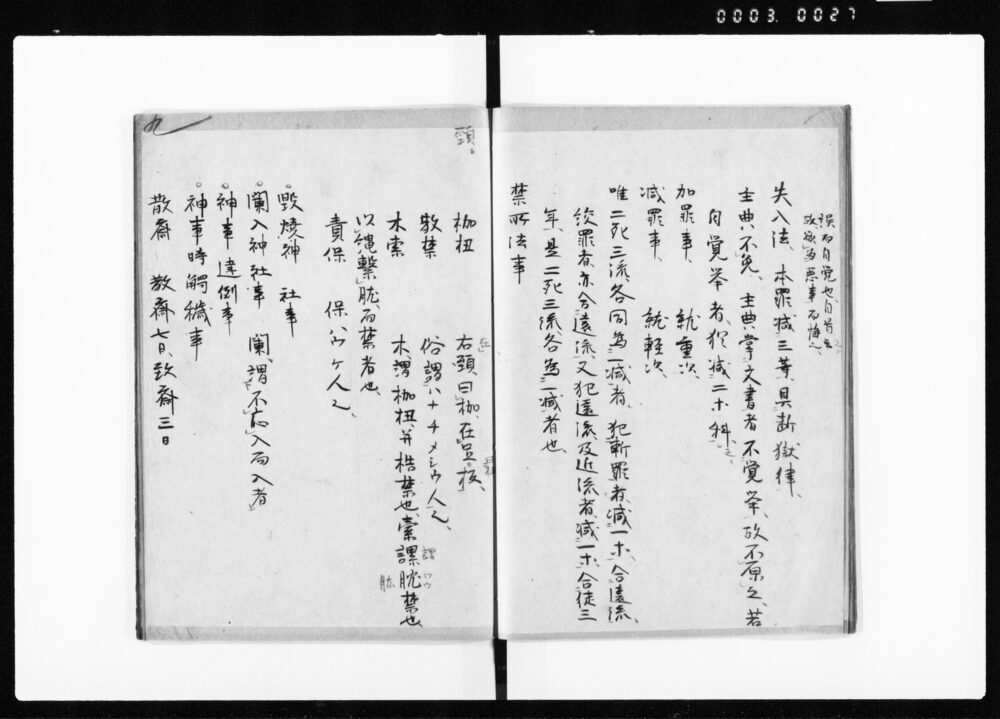 0003.0027
失入法、本罪減三等、具断獄律、
主典不免、主典掌文書者不覚挙、故不原之、若
自覚挙者、猶減二ホ科之、
加罪事、 就重次、
減罪事、 就軽次、
唯二死三流各同為一減者、犯斬罪者、減一ホ、合遠流、
絞罪者亦合遠流、又犯遠流及近流者、減一ホ、合徒三
年、是二死三流各為一減者也、
禁所法事
頸
枷杻 右頸曰枷、在足
散禁 俗謂ハナチメシウ人之、
木索 木、謂枷杻并桎禁也、索謂肱禁也
肱
以縄繋肱而禁者也、
責保 保ハウケ人之、
毀焼神社事
闌入神社事 闌、謂不応入而入者
神事違例事
神事時觸穢事
散斎 散斎七日、致斎三日
九